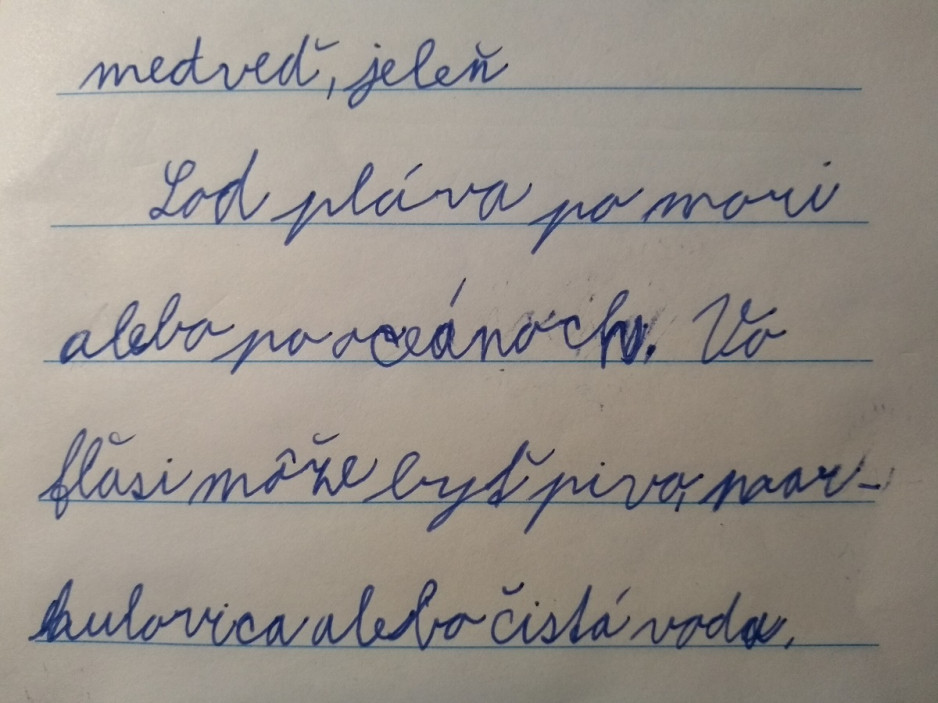 medveď, jeleň
Lod pláva po mori
alebo po oceánoch. Vo
flăsi môže byť pivo, maar-
kulovica alebo čistá voda.